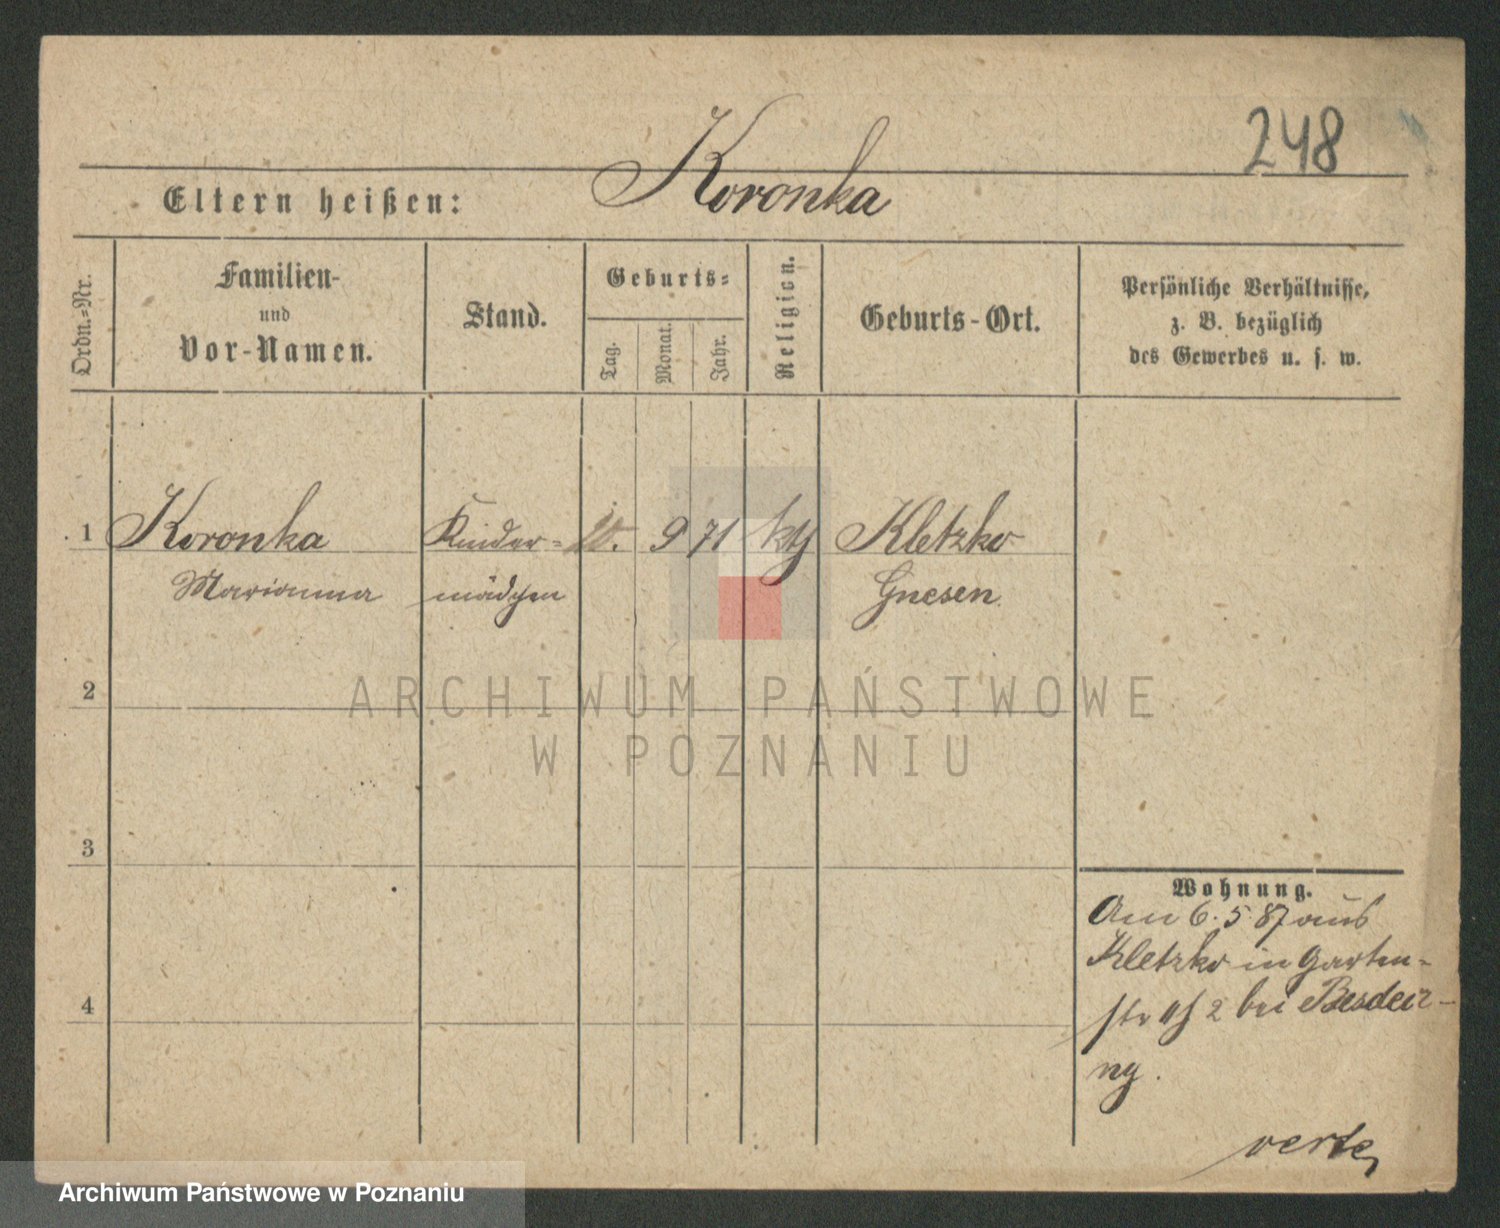 248
Eltern heißen: Koronka
Ordn.=Nr.
Familien-
und
Vor-Namen.
Stand.
Geburts=
Tag.
Monat.
Jahr.
Religion.
Geburts-Ort.
Persönliche Verhältnisse,
z. B. bezüglich
des Gewerbes u. s. w.
1 Koronka Kinder= 10. 9 71 kth Kletzko
Marianna mädchen Gnesen
2
3
4
Wohnung.
Am 6. 5. 87 aus
Kletzko in Garten=
str 2 bei
verte
ARCHIWUM PAŃSTWOWE
W POZNANIU
Archiwum Państwowe w Poznaniu